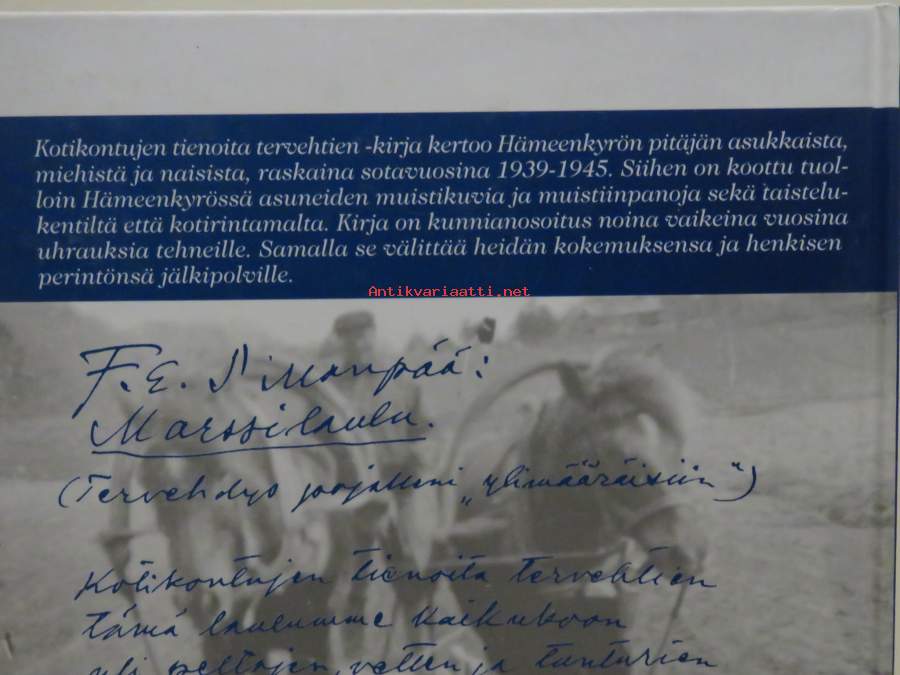 Kotikontujen tienoita tervehtien -kirja kertoo Hämeenkyrön pitäjän asukkaista,
miehistä ja naisista, raskaina sotavuosina 1939-1945. Siihen on koottu tuol-
loin Hämeenkyrössä asuneiden muistikuvia ja muistiinpanoja sekä taistelu-
kentiltä että kotirintamalta. Kirja on kunnianosoitus noina vaikeina vuosina
uhrauksia tehneille. Samalla se välittää heidän kokemuksensa ja henkisen
perintönsä jälkipolville.
Antikvariaatti.net
F.E. Sillanpää:
Marssilaulu.
(Tervehdys pojalleni „ylimääräisiin")
Kotikontujen tienoita tervehtien
tämä laulumme kaikukoon
yli peltojen, vetten ja tunturien